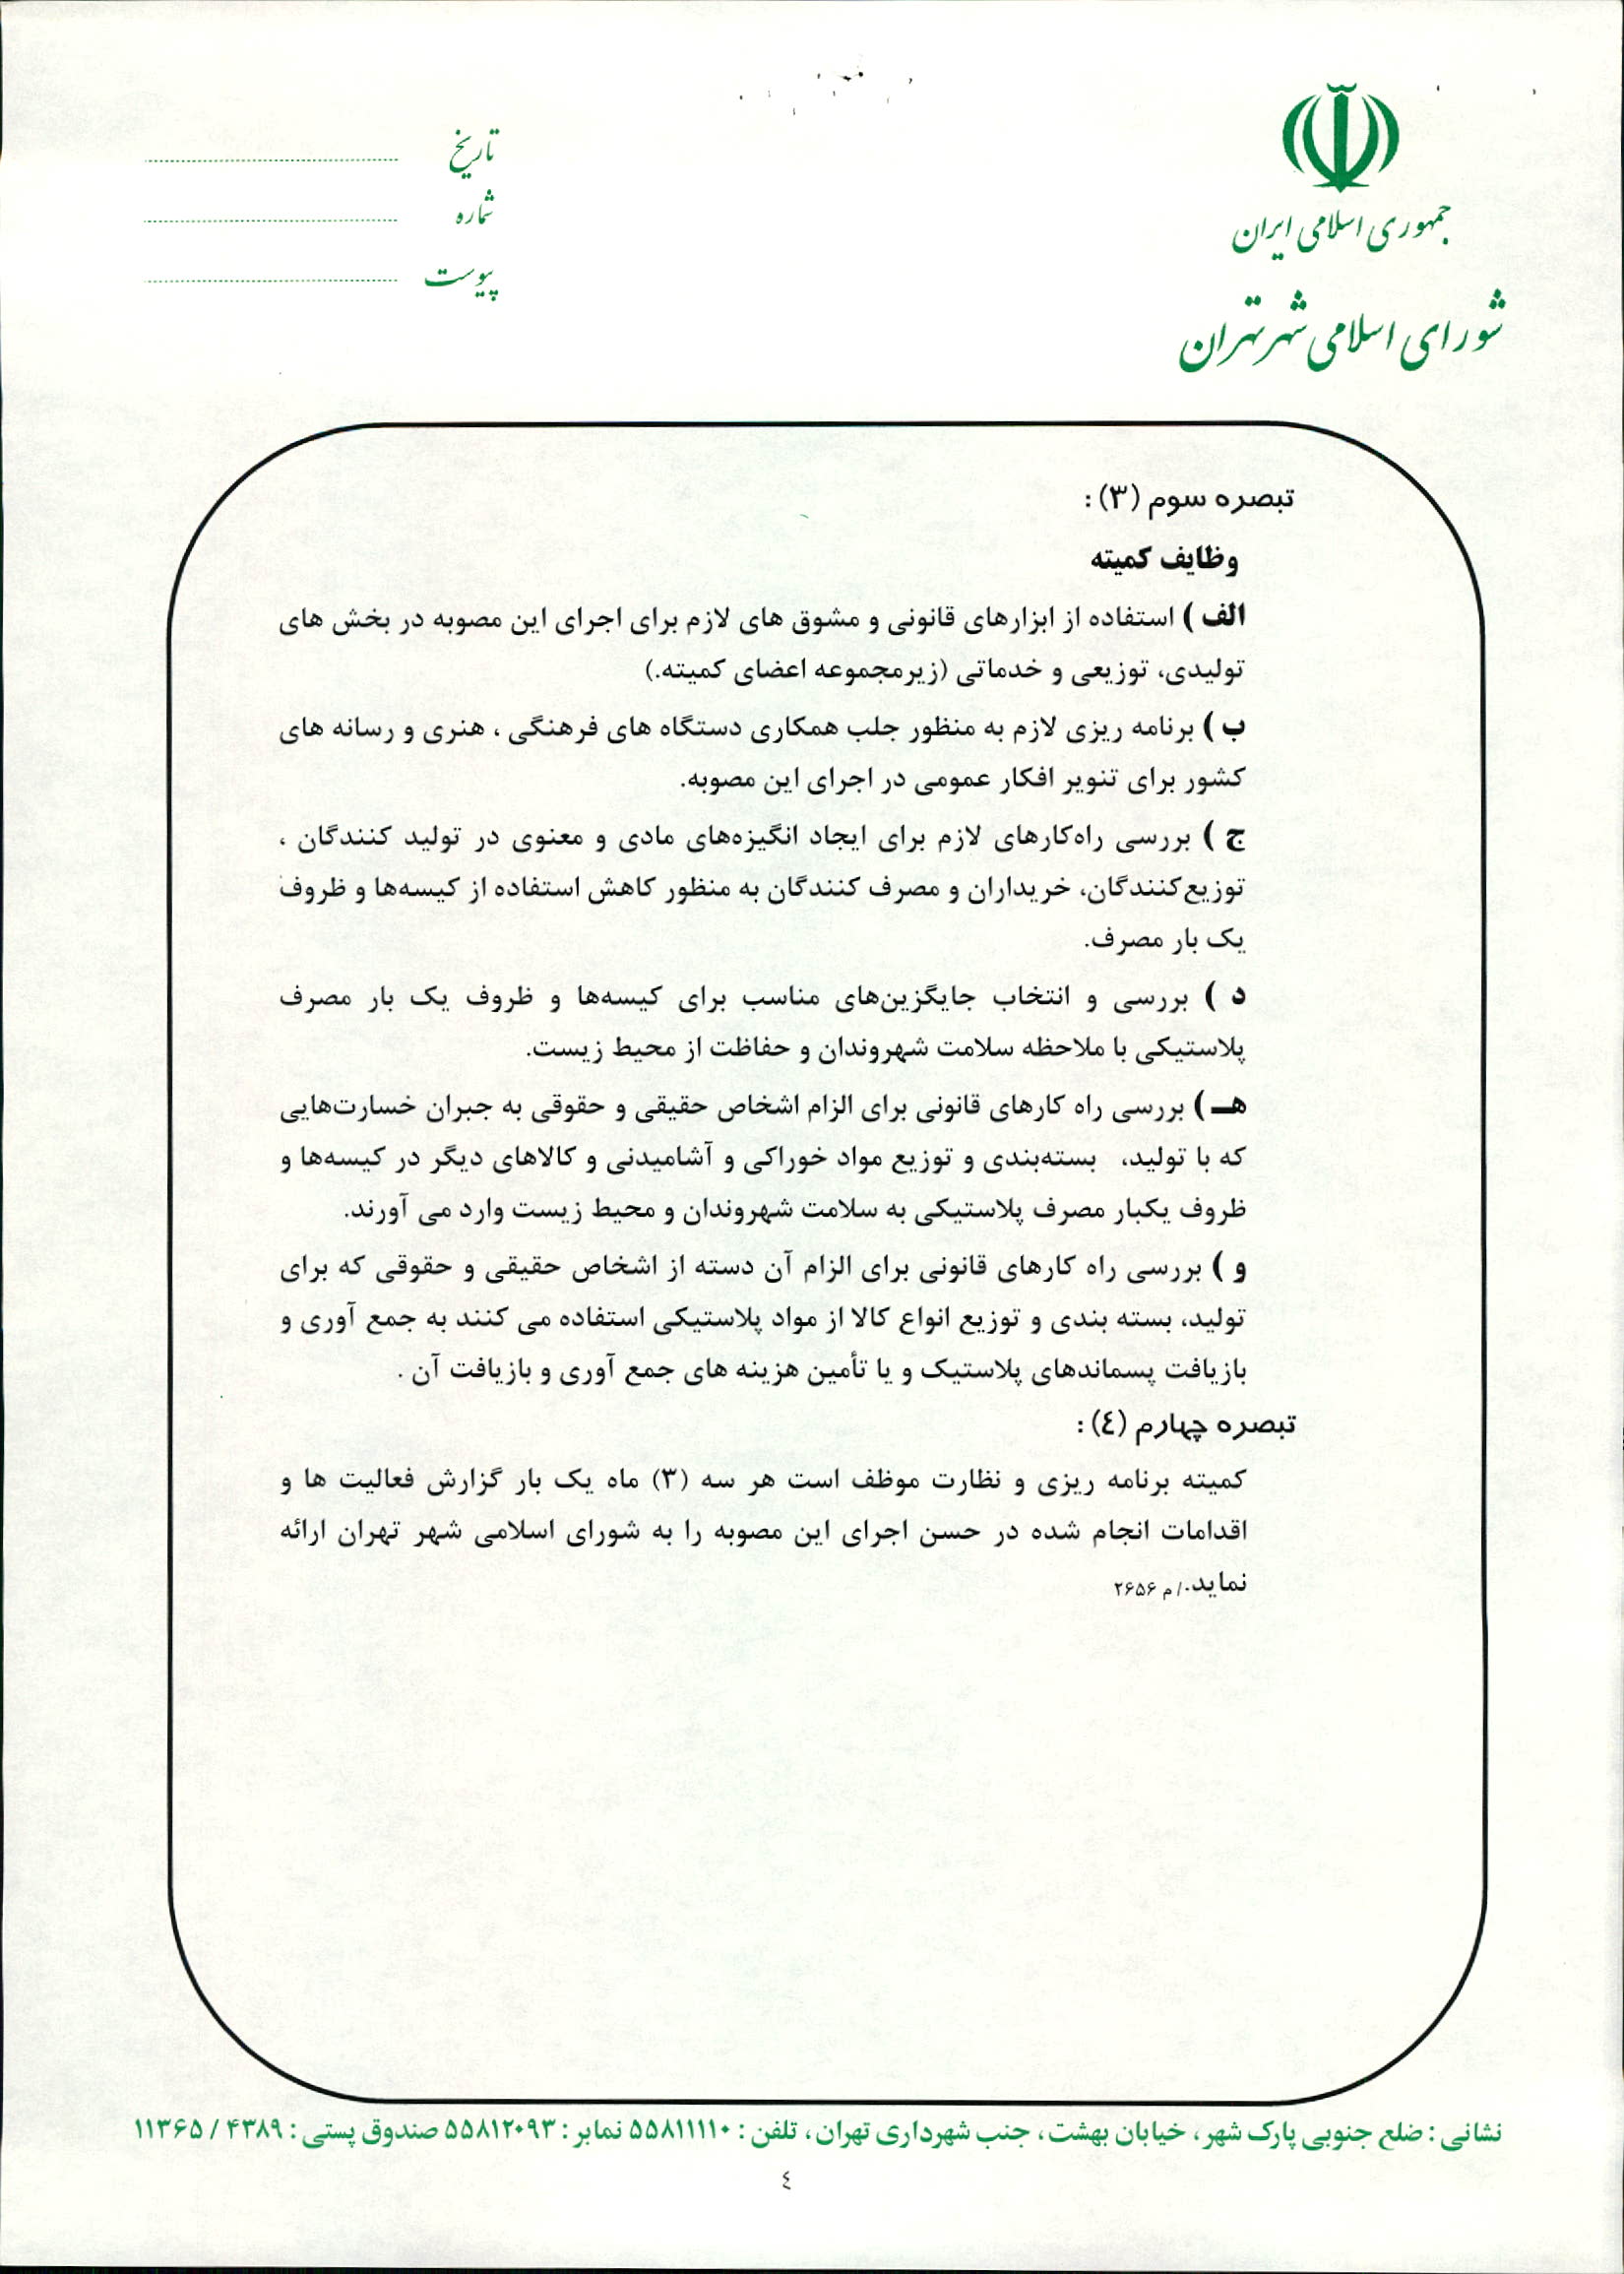 جمهوری اسلامی ایران
شورای اسلامی شهر تهران
تاریخ
شماره
پیوست
تبصره سوم (۳) :
وظایف کمیته
الف ) استفاده از ابزارهای قانونی و مشوق های لازم برای اجرای این مصوبه در بخش های
تولیدی، توزیعی و خدماتی (زیرمجموعه اعضای کمیته.)
ب ) برنامه ریزی لازم به منظور جلب همکاری دستگاه های فرهنگی ، هنری و رسانه های
کشور برای تنویر افکار عمومی در اجرای این مصوبه.
ج ) بررسی راه‌کارهای لازم برای ایجاد انگیزه‌های مادی و معنوی در تولید کنندگان ،
توزیع‌کنندگان، خریداران و مصرف کنندگان به منظور کاهش استفاده از کیسه‌ها و ظروف
یک بار مصرف.
د ) بررسی و انتخاب جایگزین‌های مناسب برای کیسه‌ها و ظروف یک بار مصرف
پلاستیکی با ملاحظه سلامت شهروندان و حفاظت از محیط زیست.
هـ ) بررسی راه کارهای قانونی برای الزام اشخاص حقیقی و حقوقی به جبران خسارت‌هایی
که با تولید، بسته‌بندی و توزیع مواد خوراکی و آشامیدنی و کالاهای دیگر در کیسه‌ها و
ظروف یکبار مصرف پلاستیکی به سلامت شهروندان و محیط زیست وارد می آورند.
و ) بررسی راه کارهای قانونی برای الزام آن دسته از اشخاص حقیقی و حقوقی که برای
تولید، بسته بندی و توزیع انواع کالا از مواد پلاستیکی استفاده می کنند به جمع آوری و
بازیافت پسماندهای پلاستیک و یا تأمین هزینه های جمع آوری و بازیافت آن .
تبصره چهارم (٤) :
کمیته برنامه ریزی و نظارت موظف است هر سه (۳) ماه یک بار گزارش فعالیت ها و
اقدامات انجام شده در حسن اجرای این مصوبه را به شورای اسلامی شهر تهران ارائه
نماید./ م ۲۶۵۶
نشانی : ضلع جنوبی پارک شهر، خیابان بهشت، جنب شهرداری تهران، تلفن : ۵۵۸۱۱۱۱۰ نمابر : ۵۵۸۱۲۰۹۳ صندوق پستی : ۴۳۸۹ / ۱۱۳۶۵
٤